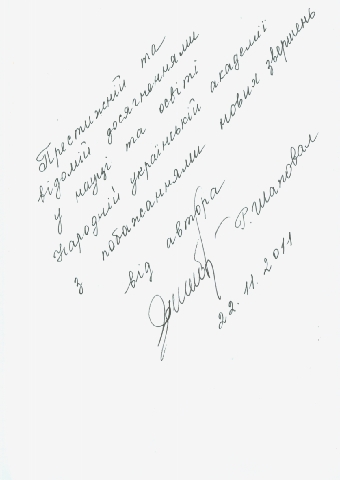 Престижній та
відомій досягненнями
у науці та освіті
Народній українській академії
з побажаннями нових звершень
від автора
Р. Шаповал
22.11.2011